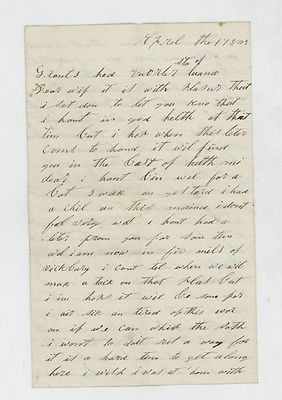 Aprel the 1 1863
Grants hed Sta of
Dear wif it is with plasur that
i set don to let you kno that
i hant in god helth at that
tim but i hop when this leter
coms to hand it wil find
you in the best of helth mi
dear i hant bin wel for a
bot I weak an yestard i had
a chil an this marning i dont
fel very wel i hant had a
leter from you for som tim
we am now in fiv mils of
vicksburg i cant tel when we wil
mak a tack on that plas but
i im hops it wil be soon for
i air sik an tired of this war
an if we can whip the soth
i want to dwit a way for
it is a hard tim to get along
here i wish i was at hom with